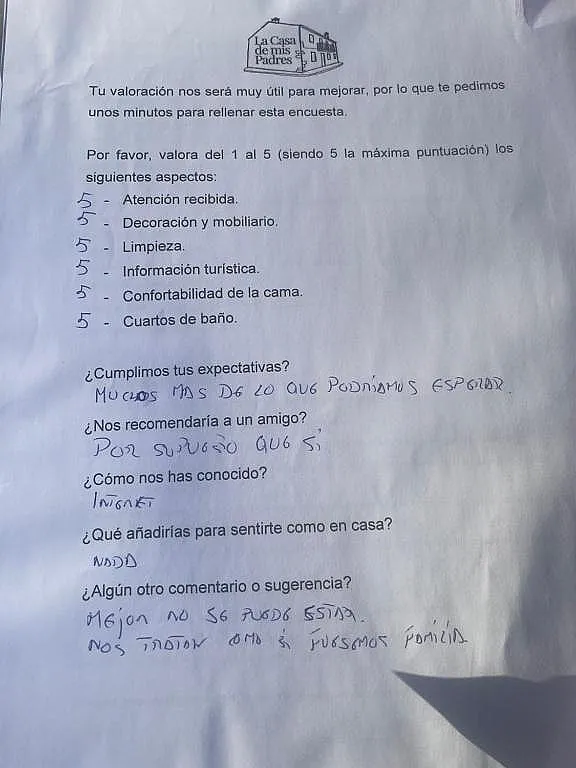 La Casa
de mis
Padres
Tu valoración nos será muy útil para mejorar, por lo que te pedimos
unos minutos para rellenar esta encuesta.
Por favor, valora del 1 al 5 (siendo 5 la máxima puntuación) los
siguientes aspectos:
5 - Atención recibida.
5 - Decoración y mobiliario.
5 - Limpieza.
5 - Información turística.
5 - Confortabilidad de la cama.
5 - Cuartos de baño.
¿Cumplimos tus expectativas?
MUCHOS MAS DE LO QUE PODRÍAMOS ESPERAR.
¿Nos recomendaría a un amigo?
POR SUPUESTO QUE SÍ
¿Cómo nos has conocido?
INTERNET
¿Qué añadirías para sentirte como en casa?
NADA
¿Algún otro comentario o sugerencia?
MEJOR NO SE PUEDE ESTAR.
NOS TRATAN COMO SI FUESEMOS FAMILIA